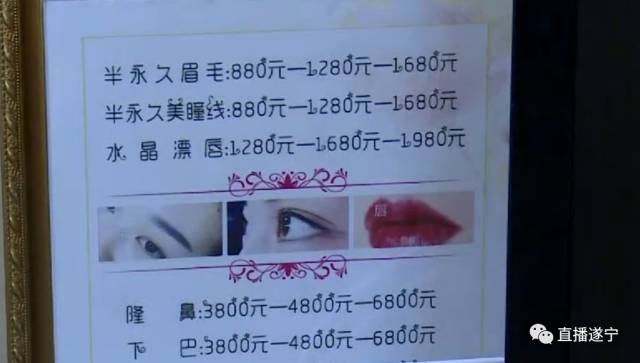 半永久眉毛:880元—1280元—1680元
半永久美瞳线:880元—1280元—1680元
水晶漂唇:1280元—1680元—1980元
隆鼻:3800元—4800元—6800元
下巴:3800元—4800元—6800元
直播遂宁